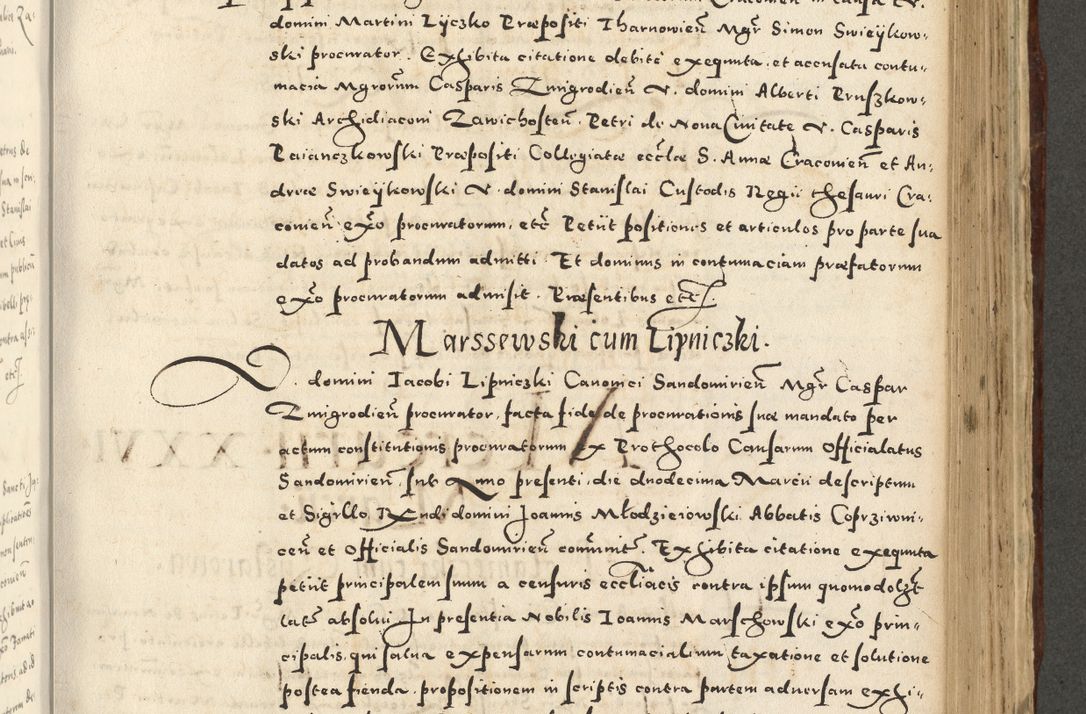 domini Martini Lyczko Præpositi Tharnowień Mgr̄ Simon Swieykow-
ski procurator. Exhibita citatione debite exequuta, et accusata contu-
macia Mgrorum Casparis Zmigrodień V. domini Alberti Pruszkow-
ski Archidiaconi Zawichosteń. Petri de Nova Civitate V. Casparis
Paianczkowski Præpositi Collegiatæ eccłæ S. Annæ Cracovień et An-
dreæ Swieykowski V. domini Stanislai Custodis Regii thesauri Cra-
covień exo procuratorum, etc̄ Petiit positiones et articulos pro parte sua
datos ad probandum admitti. Et dominus in contumaciam præfatorum
exo procuratorum admisit. Præsentibus etc̄
Marssewski cum Lipniczki.
D. domini Iacobi Lipniczki Canonici Sandomirień Mgr̄ Caspar
Zmigrodień procurator, facta fide de procurationis suæ mandato per
actum constitutionis procuratorum ex Prothocolo Causarum Officialatus
Sandomirień, sub Anno presenti, die duodecima Marcii descriptum
et Sigillo Rndi domini Joannis Młodzieiowski Abbatis Coprziwni-
ceń et Officialis Sandomirień com̄unit̄. Exhibita citatione exequuta
petiit principalem suum a censuris eccl̄iacis contra ipsum quomodolz̄t
latis absolui In presentia Nobilis Ioannis Marschowski exo prin-
cipalis, qui salua expensarum contumacialium taxatione et solutione
postea fienda, propositionem in scriptis contra partem aduersam exhi-